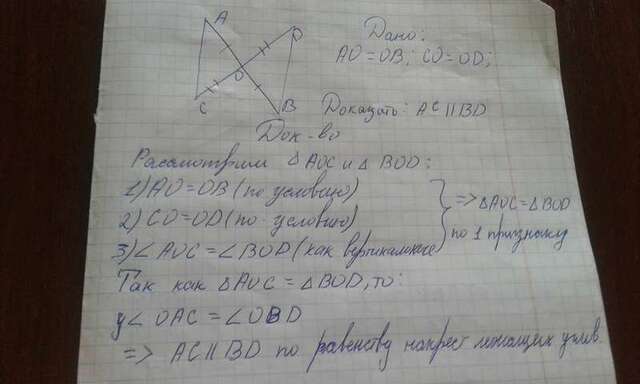 A
D
Дано:
AO=OB; CO=OD;
O
C
B
Доказать: AC||BD
Док-во
Рассмотрим △AOC и △BOD:
1) AO=OB (по условию)
2) CO=OD (по условию)
3) ∠AOC=∠BOD (как вертикальные
=> △AOC=△BOD
по 1 признаку
Так как △AOC=△BOD, то:
∠OAC=∠OBD
=> AC||BD по равенству накрест лежащих углов.